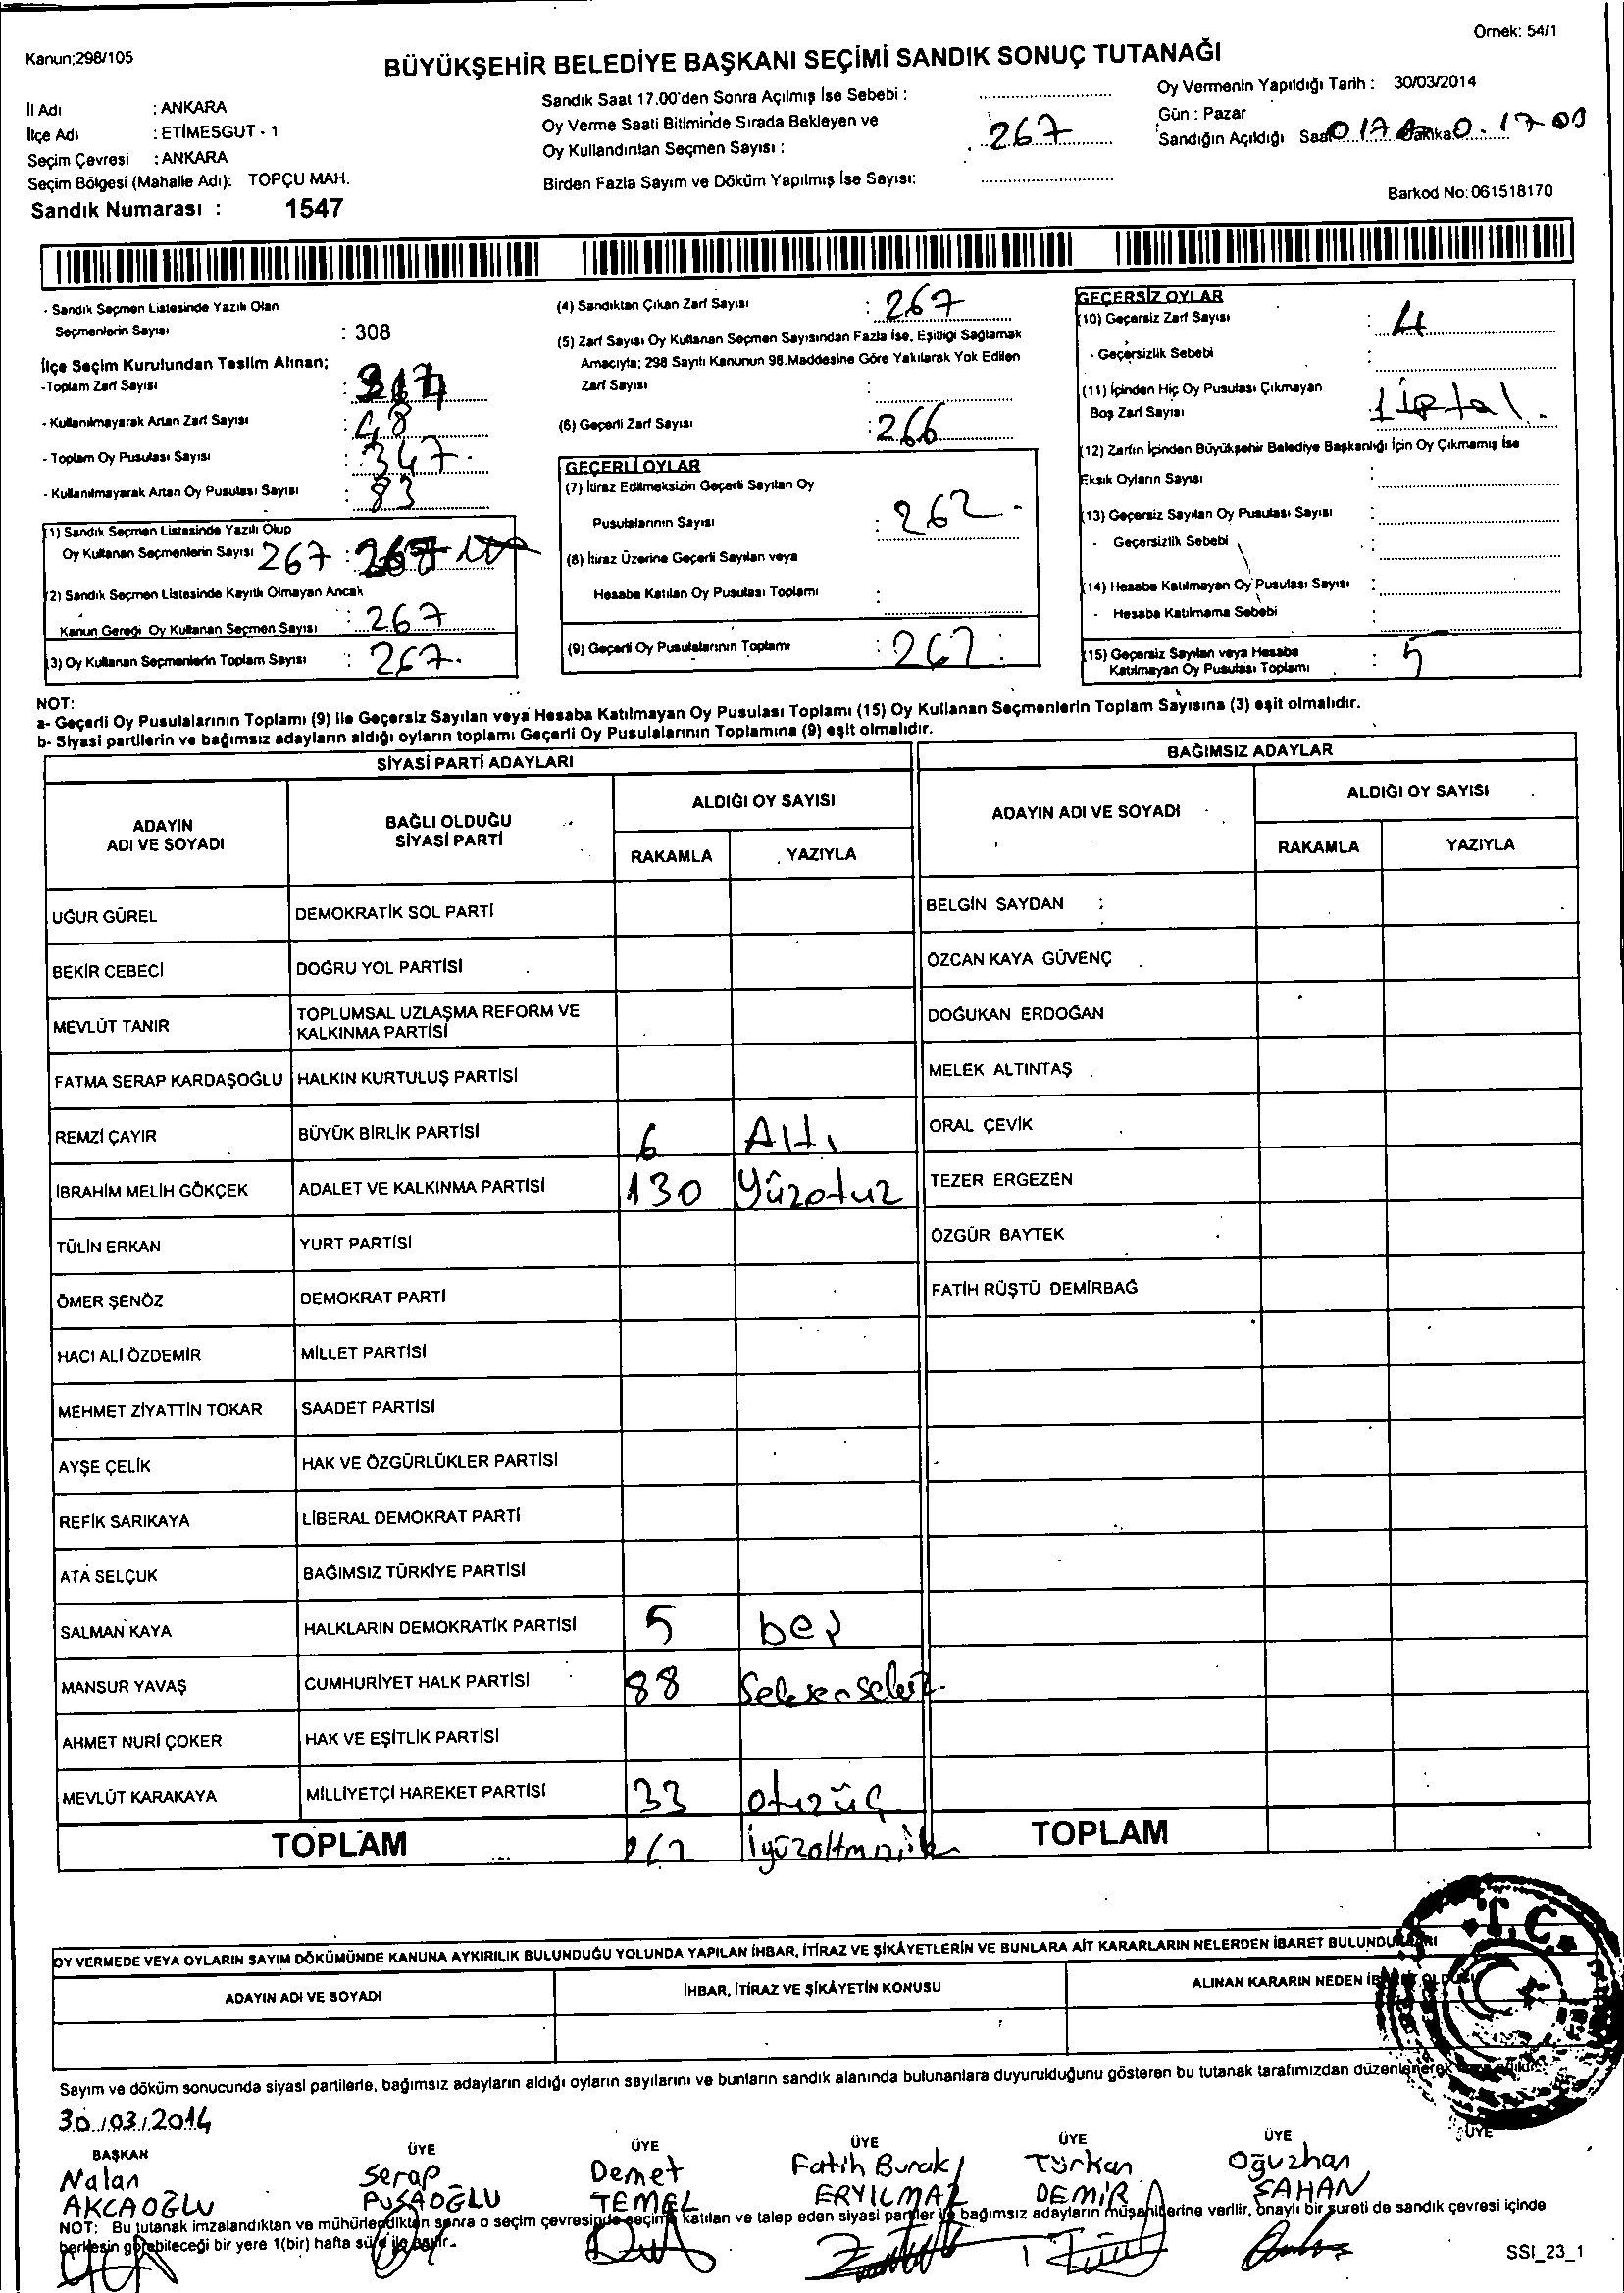 Örnek: 54/1
Kanun;298/105
BÜYÜKŞEHİR BELEDİYE BAŞKANI SEÇİMİ SANDIK SONUÇ TUTANAĞI
İl Adı : ANKARA
İlçe Adı : ETİMESGUT - 1
Seçim Çevresi : ANKARA
Seçim Bölgesi (Mahalle Adı): TOPÇU MAH.
Sandık Numarası : 1547
Sandık Saat 17.00'den Sonra Açılmış İse Sebebi :
Oy Verme Saati Bitiminde Sırada Bekleyen ve
Oy Kullandırılan Seçmen Sayısı : 267
Birden Fazla Sayım ve Döküm Yapılmış İse Sayısı:
Oy Vermenin Yapıldığı Tarih : 30/03/2014
Gün : Pazar
Sandığın Açıldığı Saat 17 00
Barkod No: 061518170
- Sandık Seçmen Listesinde Yazılı Olan
Seçmenlerin Sayısı : 308
İlçe Seçim Kurulundan Teslim Alınan;
-Toplam Zarf Sayısı :
- Kullanılmayarak Artan Zarf Sayısı : 48
- Toplam Oy Pusulası Sayısı : 347.
- Kullanılmayarak Artan Oy Pusulası Sayısı : 83
(1) Sandık Seçmen Listesinde Yazılı Olup
Oy Kullanan Seçmenlerin Sayısı 267 :
(2) Sandık Seçmen Listesinde Kayıtlı Olmayan Ancak
Kanun Gereği Oy Kullanan Seçmen Sayısı : 267
(3) Oy Kullanan Seçmenlerin Toplam Sayısı : 267.
(4) Sandıktan Çıkan Zarf Sayısı : 267
(5) Zarf Sayısı Oy Kullanan Seçmen Sayısından Fazla İse, Eşitliği Sağlamak
Amacıyla; 298 Sayılı Kanunun 98.Maddesine Göre Yakılarak Yok Edilen
Zarf Sayısı :
(6) Geçerli Zarf Sayısı : 266
GEÇERLİ OYLAR
(7) İtiraz Edilmeksizin Geçerli Sayılan Oy
Pusulalarının Sayısı : 262.
(8) İtiraz Üzerine Geçerli Sayılan veya
Hesaba Katılan Oy Pusulası Toplamı :
(9) Geçerli Oy Pusulalarının Toplamı : 262.
GEÇERSİZ OYLAR
(10) Geçersiz Zarf Sayısı : 4
- Geçersizlik Sebebi :
(11) İçinden Hiç Oy Pusulası Çıkmayan
Boş Zarf Sayısı : 1 iptal.
(12) Zarfın İçinden Büyükşehir Belediye Başkanlığı İçin Oy Çıkmamış İse
Eksik Oyların Sayısı :
(13) Geçersiz Sayılan Oy Pusulası Sayısı :
- Geçersizlik Sebebi :
(14) Hesaba Katılmayan Oy Pusulası Sayısı :
- Hesaba Katılmama Sebebi :
(15) Geçersiz Sayılan veya Hesaba
Katılmayan Oy Pusulası Toplamı : 5
NOT:
a- Geçerli Oy Pusulalarının Toplamı (9) ile Geçersiz Sayılan veya Hesaba Katılmayan Oy Pusulası Toplamı (15) Oy Kullanan Seçmenlerin Toplam Sayısına (3) eşit olmalıdır.
b- Siyasi partilerin ve bağımsız adayların aldığı oyların toplamı Geçerli Oy Pusulalarının Toplamına (9) eşit olmalıdır.
SİYASİ PARTİ ADAYLARI
ADAYIN ADI VE SOYADI BAĞLI OLDUĞU SİYASİ PARTİ ALDIĞI OY SAYISI
RAKAMLA YAZIYLA
UĞUR GÜREL DEMOKRATİK SOL PARTİ
BEKİR CEBECİ DOĞRU YOL PARTİSİ
MEVLÜT TANIR TOPLUMSAL UZLAŞMA REFORM VE KALKINMA PARTİSİ
FATMA SERAP KARDAŞOĞLU HALKIN KURTULUŞ PARTİSİ
REMZİ ÇAYIR BÜYÜK BİRLİK PARTİSİ 6 Altı
İBRAHİM MELİH GÖKÇEK ADALET VE KALKINMA PARTİSİ 130 Yüzotuz
TÜLİN ERKAN YURT PARTİSİ
ÖMER ŞENÖZ DEMOKRAT PARTİ
HACI ALİ ÖZDEMİR MİLLET PARTİSİ
MEHMET ZİYATTİN TOKAR SAADET PARTİSİ
AYŞE ÇELİK HAK VE ÖZGÜRLÜKLER PARTİSİ
REFİK SARIKAYA LİBERAL DEMOKRAT PARTİ
ATA SELÇUK BAĞIMSIZ TÜRKİYE PARTİSİ
SALMAN KAYA HALKLARIN DEMOKRATİK PARTİSİ 5 beş
MANSUR YAVAŞ CUMHURİYET HALK PARTİSİ 88 Seksensekiz.
AHMET NURİ ÇOKER HAK VE EŞİTLİK PARTİSİ
MEVLÜT KARAKAYA MİLLİYETÇİ HAREKET PARTİSİ 33 otuzüç
TOPLAM 262
BAĞIMSIZ ADAYLAR
ADAYIN ADI VE SOYADI ALDIĞI OY SAYISI
RAKAMLA YAZIYLA
BELGİN SAYDAN
ÖZCAN KAYA GÜVENÇ
DOĞUKAN ERDOĞAN
MELEK ALTINTAŞ
ORAL ÇEVİK
TEZER ERGEZEN
ÖZGÜR BAYTEK
FATİH RÜŞTÜ DEMİRBAĞ
TOPLAM
OY VERMEDE VEYA OYLARIN SAYIM DÖKÜMÜNDE KANUNA AYKIRILIK BULUNDUĞU YOLUNDA YAPILAN İHBAR, İTİRAZ VE ŞİKÂYETLERİN VE BUNLARA AİT KARARLARIN NELERDEN İBARET BULUNDUKLARI
ADAYIN ADI VE SOYADI İHBAR, İTİRAZ VE ŞİKÂYETİN KONUSU ALINAN KARARIN NEDEN İBARET OLDUĞU
T.C.
Sayım ve döküm sonucunda siyasi partilerle, bağımsız adayların aldığı oyların sayılarını ve bunların sandık alanında bulunanlara duyurulduğunu gösteren bu tutanak tarafımızdan düzenlenerek
30/03/2014
BAŞKAN ÜYE ÜYE ÜYE ÜYE ÜYE ÜYE
Nalan Serap Demet Fatih Burak Türkan Oğuzhan
AKCAOĞLU PUSAOĞLU TEMEL ERYILMAZ DEMİR ŞAHAN
NOT: Bu tutanak imzalandıktan ve mühürlendikten sonra o seçim çevresinde seçime katılan ve talep eden siyasi partiler ile bağımsız adayların müşahitlerine verilir, onaylı bir sureti de sandık çevresi içinde
herkesin görebileceği bir yere 1(bir) hafta süre ile asılır.
SSI_23_1